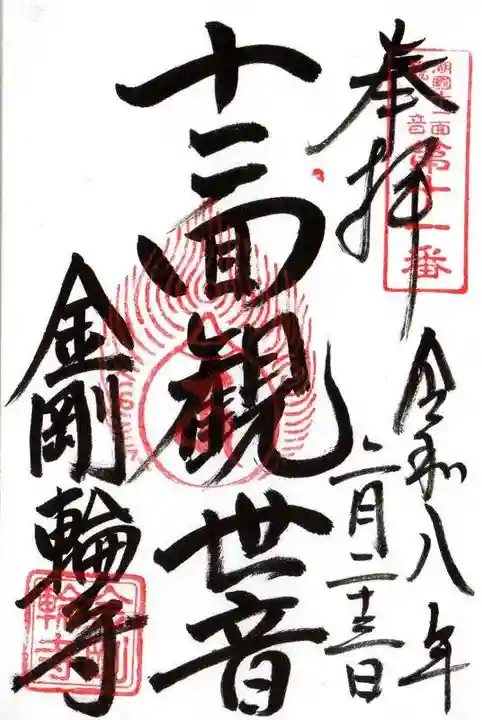 奉拝
湖國十一面
観音
第十一番
令和八年
二月二十三日
十一面觀世音
金剛輪寺
金剛輪寺